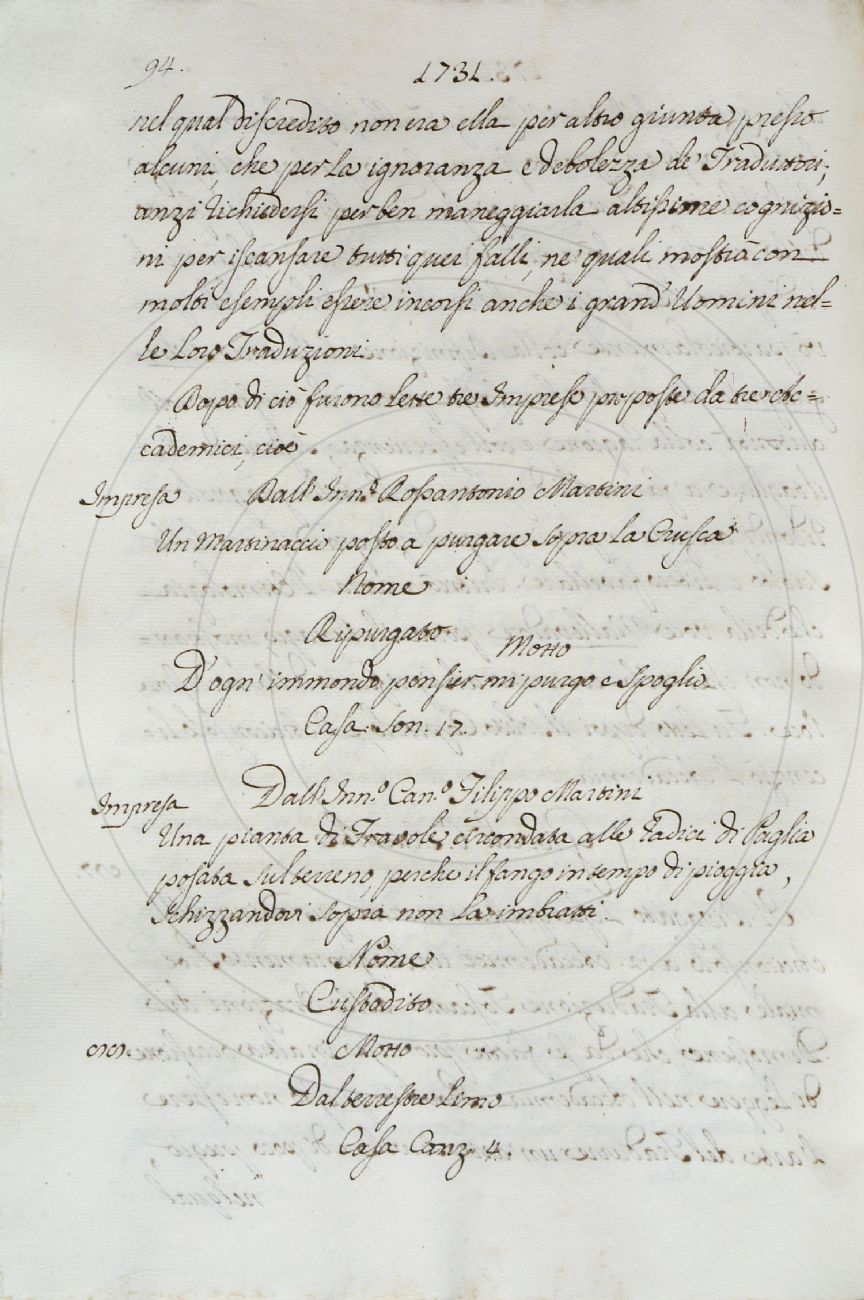 94.
1731.
nel qual discredito non era ella per altro giunta presso
alcuni, che per la ignoranza e debolezza de' Traduttori;
anzi richiedersi per ben maneggiarla altissime cognizio=
ni per iscansare tutti quei falli, ne' quali mostrò con
molti esempli essere incorsi anche i grand' Uomini nel=
le loro Traduzioni.
Dopo di ciò furono lette tre Imprese proposte da tre Ac=
cademici, cioè
Impresa Dall' Inn.º Rossantonio Martini
Un Martinaccio posto a purgare sopra la Crusca
Nome
Ripurgato
Motto
D'ogn' immondo pensier mi purgo e spoglio.
Casa. Son. 17.
Impresa Dall' Inn.º Can.º Filippo Martini
Una pianta di Fravole, circondata alle radici di Paglia
posata sul terreno, perche il fango in tempo di pioggia,
schizzandovi sopra non la imbratti.
Nome
Custodito
Motto
Dal terrestre limo
Casa Canz. 4.